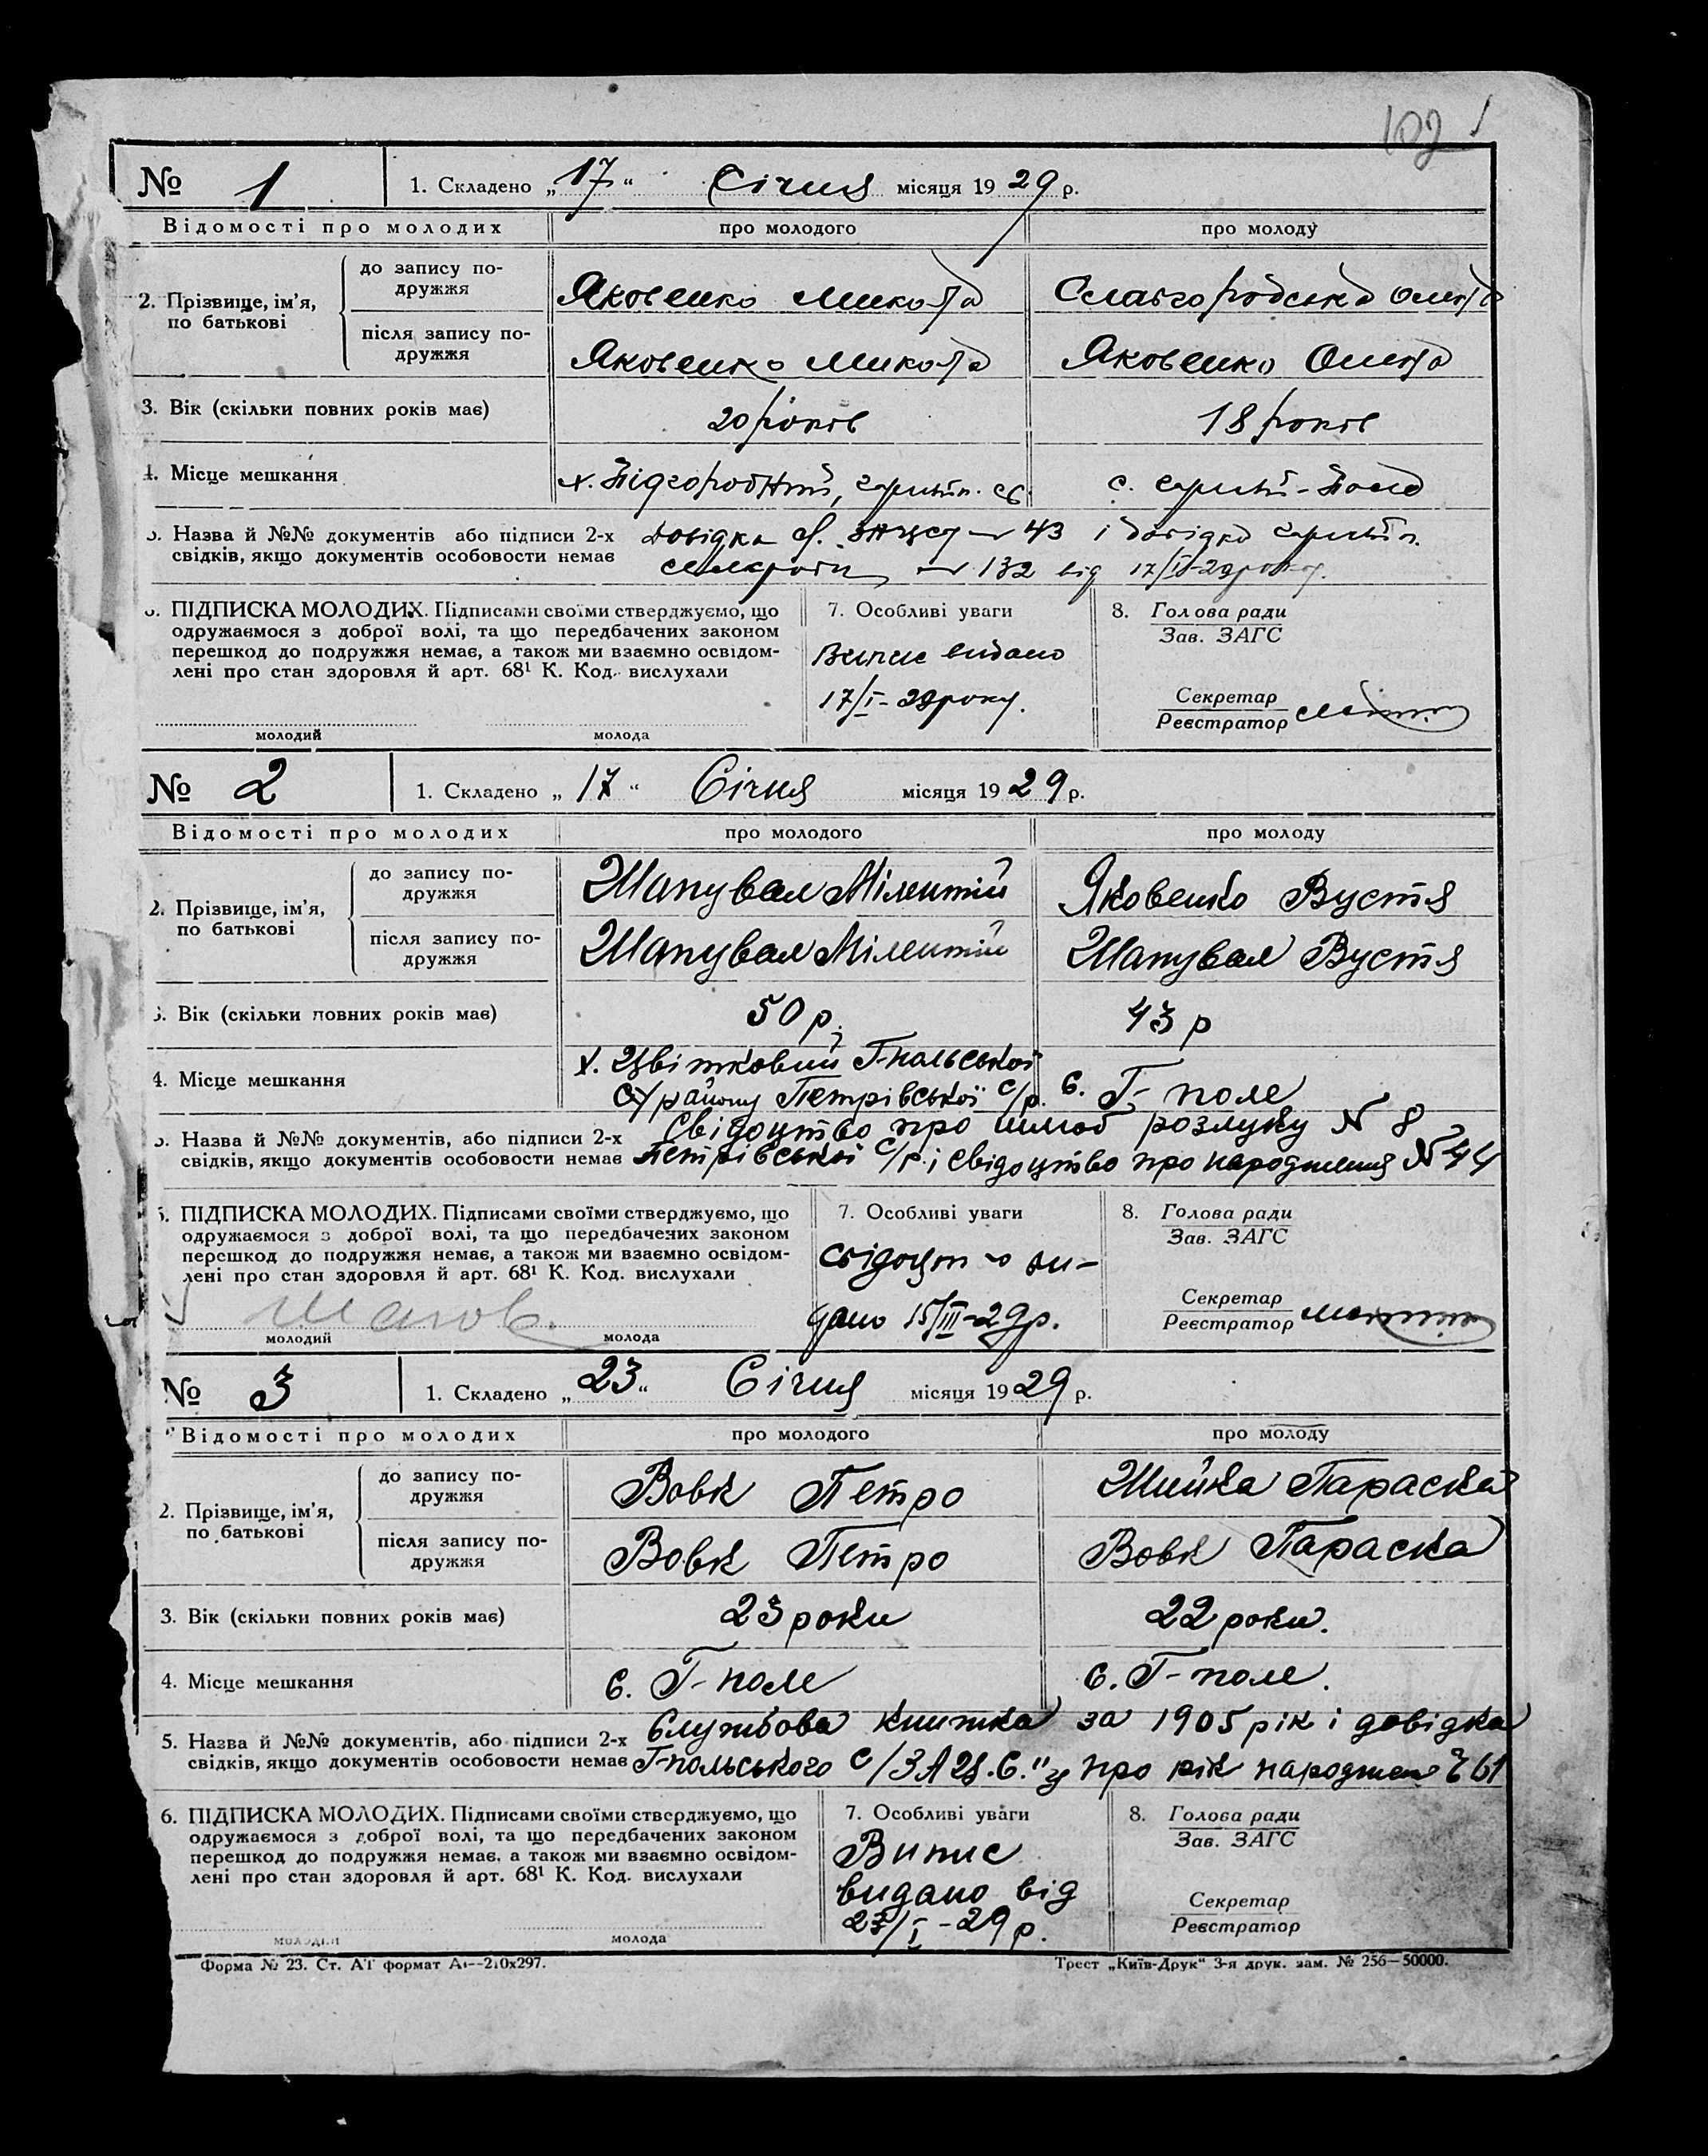 102
№ 1 1. Складено „17“ Січня місяця 1929 р.
Відомості про молодих про молодого про молоду
2. Прізвище, ім’я, по батькові
до запису подружжя Яковенко Микола Славгородська
після запису подружжя Яковенко Микола Яковенко
3. Вік (скільки повних років має) 20 років 18 років
4. Місце мешкання х. Підгородний, с.
Назва й №№ документів або підписи 2-х Довідка 43 і довідка
свідків, якщо документів особовости немає 132 від 17/I-29 року.
ПІДПИСКА МОЛОДИХ. Підписами своїми стверджуємо, що
одружаємося з доброї волі, та що передбачених законом
перешкод до подружжя немає, а також ми взаємно освідом-
лені про стан здоровля й арт. 68¹ К. Код. вислухали
молодий молода
7. Особливі уваги
Випис видано
17/I-29 року.
8. Голова ради
Зав. ЗАГС
Секретар
Реєстратор
№ 2 1. Складено „17“ Січня місяця 1929 р.
Відомості про молодих про молодого про молоду
2. Прізвище, ім’я, по батькові
до запису подружжя Шапувал Мілентій Яковенко Вустя
після запису подружжя Шапувал Мілентій Шапувал Вустя
3. Вік (скільки повних років має) 50 р. 43 р
х. Цвітковий Г-пальської
4. Місце мешкання с/району Петрівської с/р. с. Г-поле
Назва й №№ документів, або підписи 2-х Свідоцтво про шлюб розлуку № 8
свідків, якщо документів особовости немає Петрівської с/р. і свідоцтво про народження № 44
ПІДПИСКА МОЛОДИХ. Підписами своїми стверджуємо, що
одружаємося з доброї волі, та що передбачених законом
перешкод до подружжя немає, а також ми взаємно освідом-
лені про стан здоровля й арт. 68¹ К. Код. вислухали
молодий молода
7. Особливі уваги
свідоцт-о ви-
дано 15/III-29р.
8. Голова ради
Зав. ЗАГС
Секретар
Реєстратор
№ 3 1. Складено „23“ Січня місяця 1929 р.
Відомості про молодих про молодого про молоду
2. Прізвище, ім’я, по батькові
до запису подружжя Вовк Петро Шийка Параска
після запису подружжя Вовк Петро Вовк Параска
3. Вік (скільки повних років має) 23 роки 22 роки.
4. Місце мешкання с. Г-поле с. Г-поле.
5. Назва й №№ документів, або підписи 2-х Службова книжка за 1905 рік і довідка
свідків, якщо документів особовости немає Г-польського с/ЗАЦ.С."у про рік народжен 61
6. ПІДПИСКА МОЛОДИХ. Підписами своїми стверджуємо, що
одружаємося з доброї волі, та що передбачених законом
перешкод до подружжя немає, а також ми взаємно освідом-
лені про стан здоровля й арт. 68¹ К. Код. вислухали
молодий молода
7. Особливі уваги
Випис
видано від
23/I-29 р.
8. Голова ради
Зав. ЗАГС
Секретар
Реєстратор
Форма № 23. Ст. АТ формат А4—210х297. Трест „Київ-Друк“ 3-я друк. зам. № 256—50000.